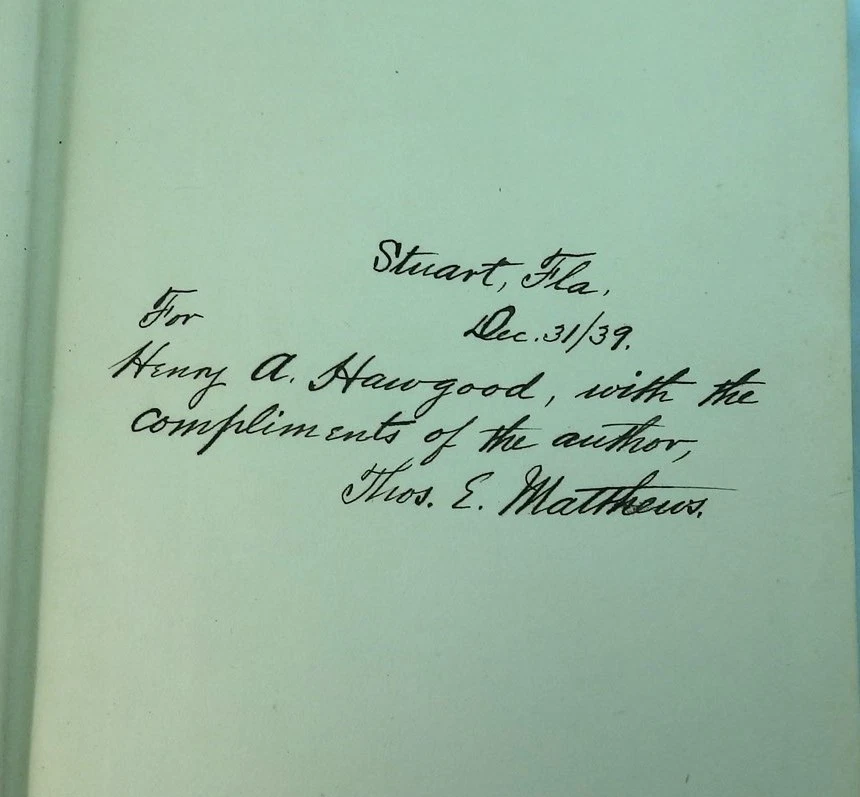 Stuart, Fla.
Dec. 31/39.
For
Henry A. Hawgood, with the
compliments of the author,
Thos. E. Matthews.